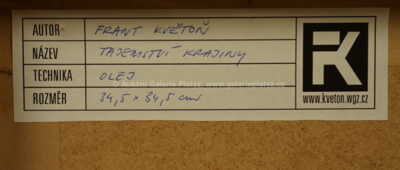 AUTOR FRANT KVĚTOŇ
NÁZEV TAJEMSTVÍ KRAJINY
TECHNIKA OLEJ
ROZMĚR 34,5 x 34,5 cm
FK
www.kveton.wgz.cz